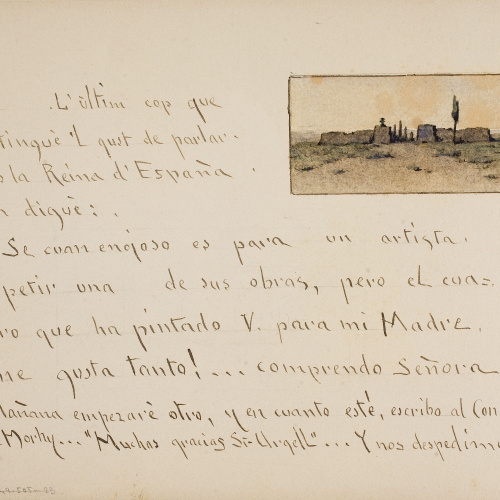 L'últim cop que
tingué 'L gust de parlar.
la Reina d'España.
digué:.
Se cuan enojoso es para un artista.
petir una de sus obras, pero el cua=
ro que ha pintado V. para mi Madre.
me gusta tanto!... comprendo Señora
Mañana empezaré otro, y en cuanto esté, escribo al Con
Morhy... "Muchas gracias Sr. Urgell"... Y nos despedimo